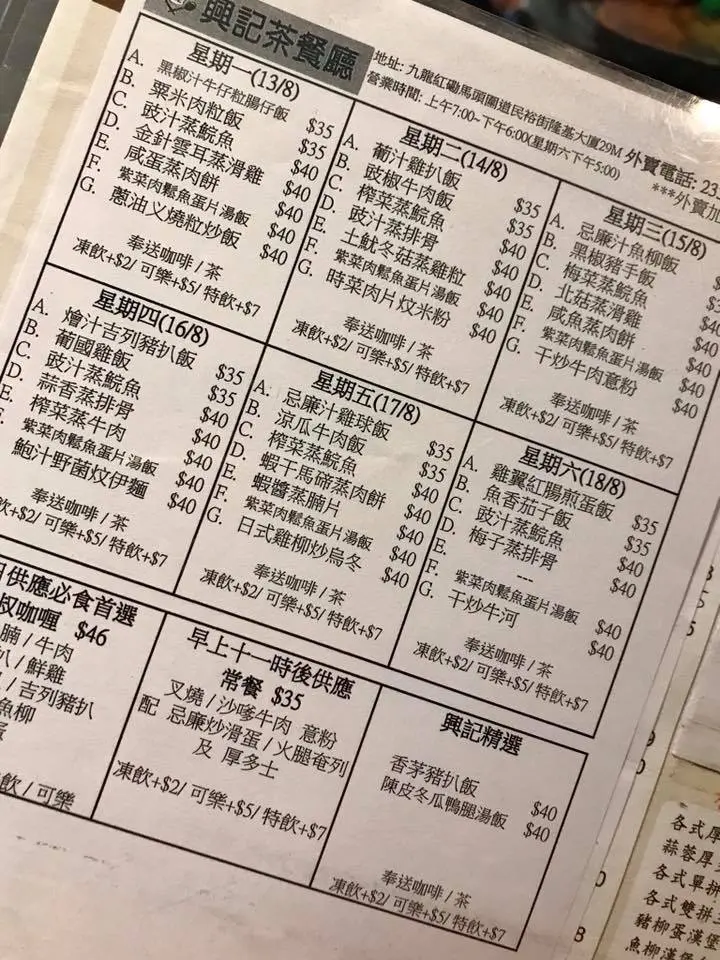 興記茶餐廳
地址: 九龍紅磡馬頭圍道民裕街隆基大廈29M 外賣電話: 23
營業時間: 上午7:00~下午6:00(星期六下午5:00)
***外賣加
星期一(13/8)
A. 黑椒汁牛仔粒腸仔飯 $35
B. 粟米肉粒飯 $35
C. 豉汁蒸鯇魚 $40
D. 金針雲耳蒸滑雞 $40
E. 咸蛋蒸肉餅 $40
F. 紫菜肉鬆魚蛋片湯飯 $40
G. 蔥油义燒粒炒飯 $40
奉送咖啡 / 茶
凍飲+$2/ 可樂+$5/ 特飲+$7
星期二(14/8)
A. 葡汁雞扒飯 $35
B. 豉椒牛肉飯 $35
C. 榨菜蒸鯇魚 $40
D. 豉汁蒸排骨 $40
E. 土魷冬菇蒸雞粒 $40
F. 紫菜肉鬆魚蛋片湯飯 $40
G. 時菜肉片炆米粉 $40
奉送咖啡 / 茶
凍飲+$2/ 可樂+$5/ 特飲+$7
星期三(15/8)
A. 忌廉汁魚柳飯
B. 黑椒豬手飯
C. 梅菜蒸鯇魚
D. 北菇蒸滑雞
E. 咸魚蒸肉餅 $40
F. 紫菜肉鬆魚蛋片湯飯 $40
G. 干炒牛肉意粉 $40
奉送咖啡 / 茶
凍飲+$2/ 可樂+$5/ 特飲+$7
星期四(16/8)
A. 燴汁吉列豬扒飯 $35
B. 葡國雞飯 $35
C. 豉汁蒸鯇魚 $40
D. 蒜香蒸排骨 $40
E. 榨菜蒸牛肉 $40
紫菜肉鬆魚蛋片湯飯 $40
鮑汁野菌炆伊麵 $40
奉送咖啡 / 茶
飲+$2/ 可樂+$5/ 特飲+$7
星期五(17/8)
A. 忌廉汁雞球飯 $35
B. 涼瓜牛肉飯 $35
C. 榨菜蒸鯇魚 $40
D. 蝦干馬蹄蒸肉餅 $40
E. 蝦醬蒸腩片 $40
F. 紫菜肉鬆魚蛋片湯飯 $40
G. 日式雞柳炒烏冬 $40
奉送咖啡 / 茶
凍飲+$2/ 可樂+$5/ 特飲+$7
星期六(18/8)
A. 雞翼紅腸煎蛋飯 $35
B. 魚香茄子飯 $35
C. 豉汁蒸鯇魚 $40
D. 梅子蒸排骨 $40
E. ---
F. 紫菜肉鬆魚蛋片湯飯 $40
G. 干炒牛河 $40
奉送咖啡 / 茶
凍飲+$2/ 可樂+$5/ 特飲+$7
供應必食首選
叔咖喱 $46
腩 / 牛肉
扒 / 鮮雞
/ 吉列豬扒
魚柳
飲 / 可樂
早上十一時後供應
常餐 $35
叉燒 / 沙嗲牛肉 意粉
配 忌廉炒滑蛋 / 火腿奄列
及 厚多士
凍飲+$2/ 可樂+$5/ 特飲+$7
興記精選
香茅豬扒飯 $40
陳皮冬瓜鴨腿湯飯 $40
奉送咖啡 / 茶
凍飲+$2/ 可樂+$5/ 特飲+$7
各式厚
蒜蓉厚
各式單拼
各式雙拼
豬柳蛋漢堡
魚柳漢堡